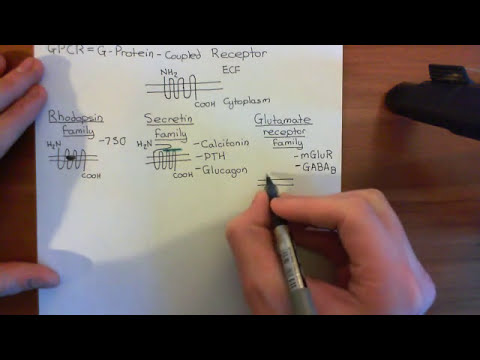 GPCR = G-Protein-Coupled Receptor
NH₂ ECF
COOH Cytoplasm
Rhodopsin Family
-750
H₂N
COOH
Secretin Family
H₂N
COOH
-Calcitonin
-PTH
-Glucagon
Glutamate receptor Family
-mGluR
-GABA_B